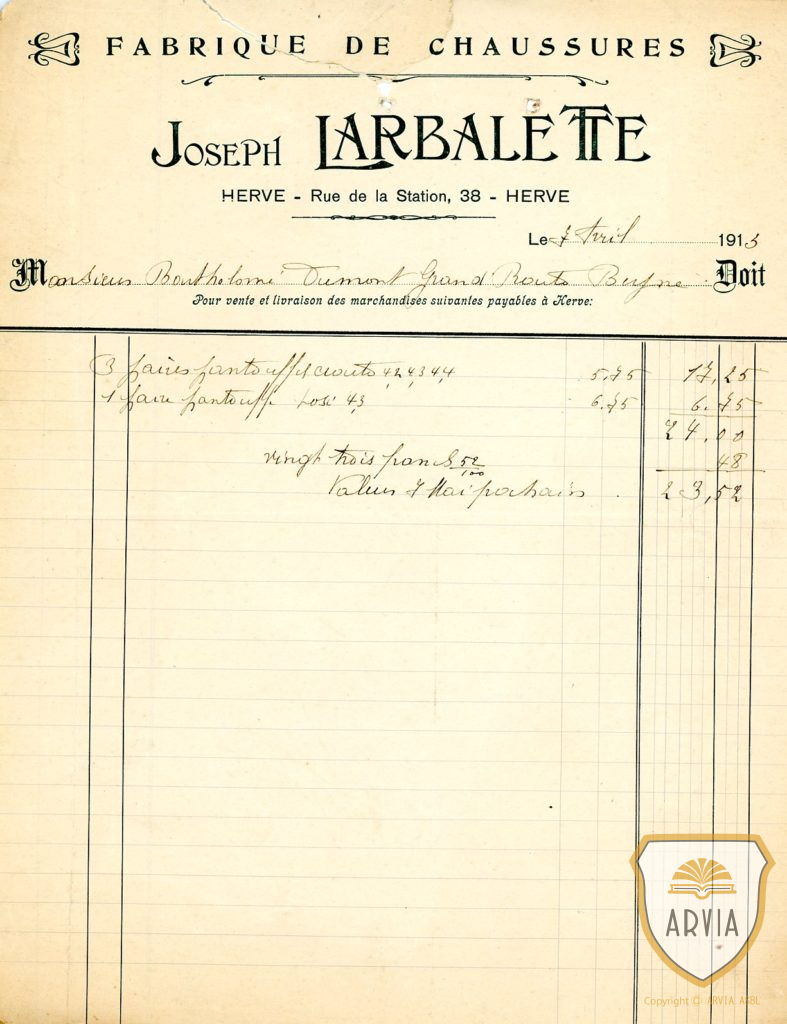 FABRIQUE DE CHAUSSURES
JOSEPH LARBALETTE
HERVE - Rue de la Station, 38 - HERVE
Le 7 Avril 1913
Monsieur Dumont Grand Route Doit
Pour vente et livraison des marchandises suivantes payables à Herve:
3 paires 42 43 44 5.75 17,25
1 paire 43 6.75 6.75
24,00
vingt trois 52/100 48
Valeur 7 Mai prochain 23,52
ARVIA
Copyright © ARVIA ASBL